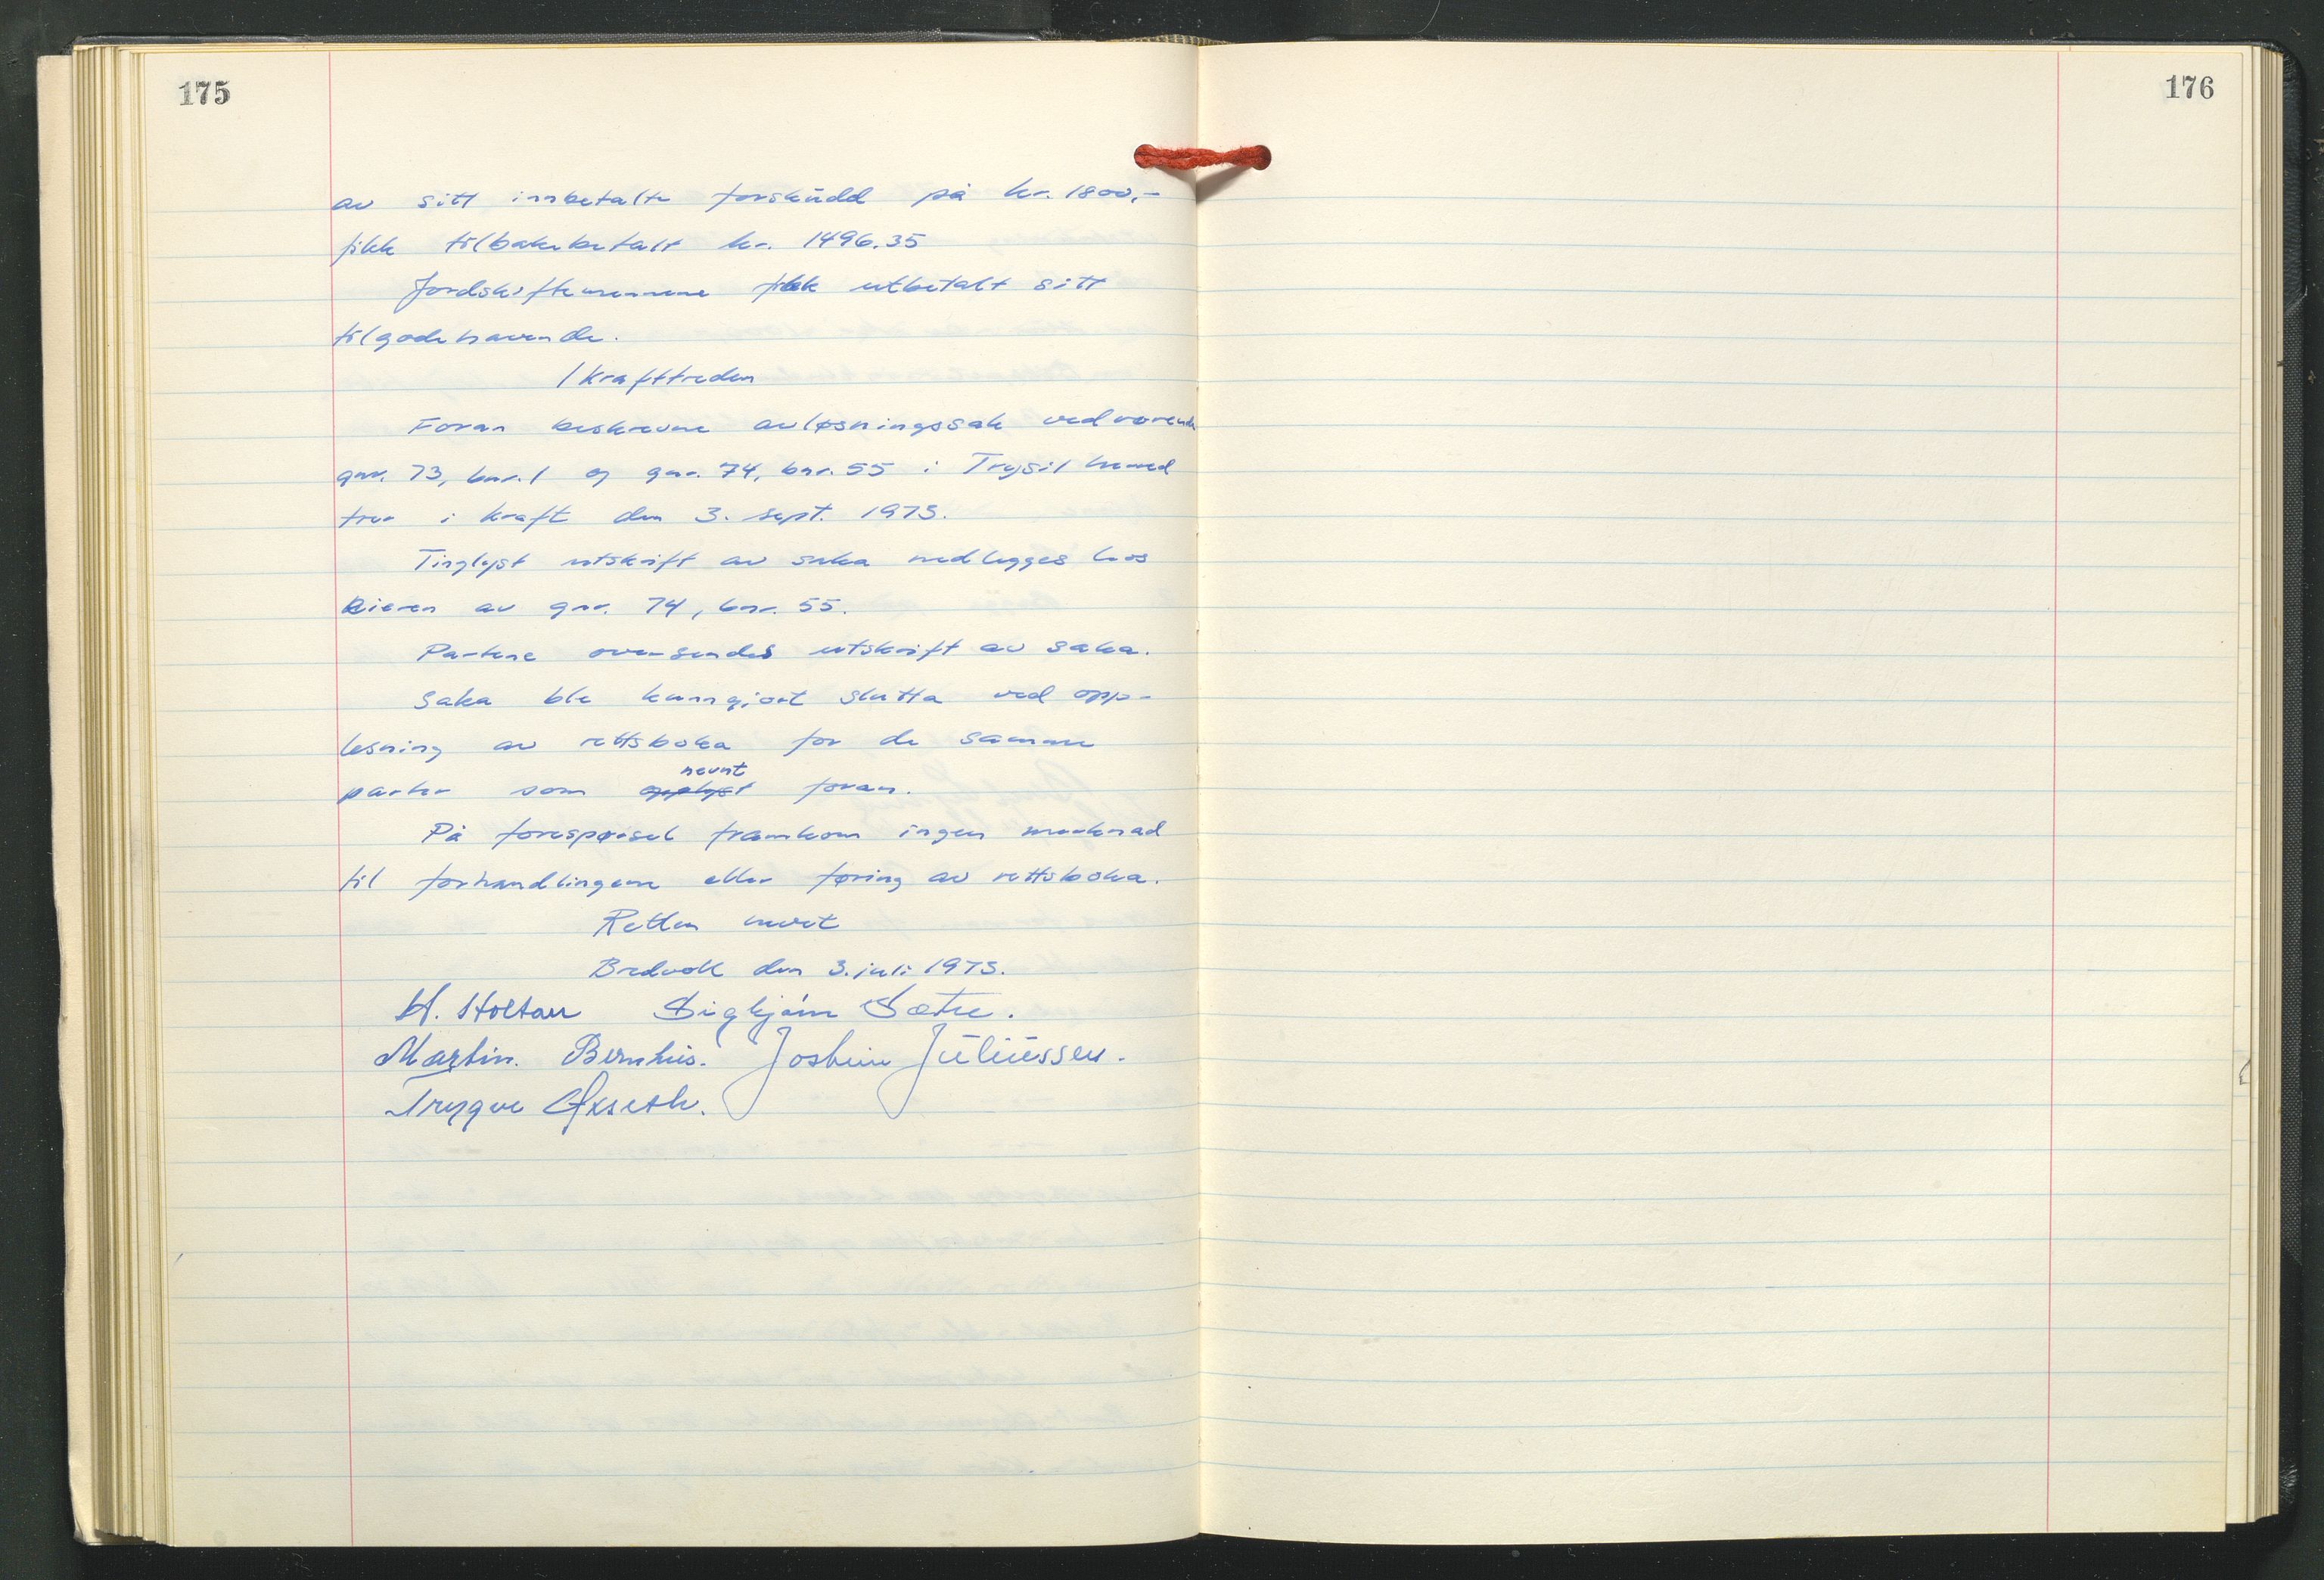 175
av sitt innbetalte forskudd på kr. 1800,-
fikk tilbakebetalt kr. 1496.35
Jordskiftemennene fikk utbetalt sitt
tilgodehavende.
Ikrafttreden
Foran beskrevne avløsningssak vedrørende
gnr. 73, bnr. 1 og gnr. 74, bnr. 55 i Trysil herred
trer i kraft den 3. sept. 1975.
Tinglyst utskrift av saka nedlegges hos
eieren av gnr. 74, bnr. 55.
Partene oversendes utskrift av saka.
Saka ble kunngjort slutta ved opp-
lesning av rettsboka for de samme
nevnt
parter som opplyst foran.
På forespørsel framkom ingen merknad
til forhandlingene eller føring av rettsboka.
Retten hevet
Bredvoll den 3. juli 1975.
H. Holtan Sigbjørn Sætre.
Martin. Bernhus. Jostein Juliussen.
Trygve Akseth.
176